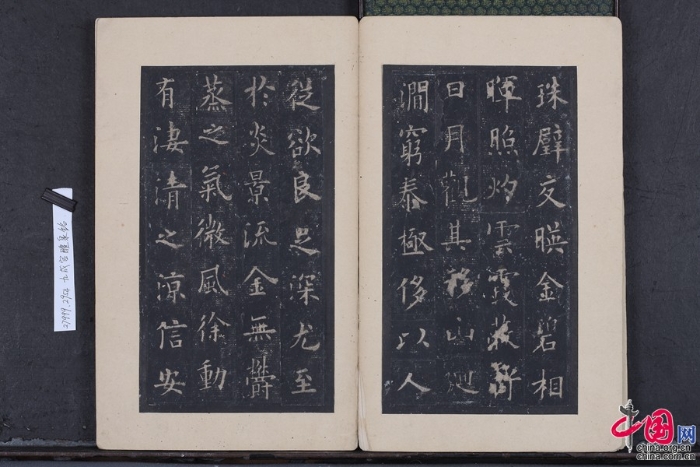 珠璧交暎金碧相
暉照灼雲霞蔽虧
日月觀其移山廻
澗窮泰極侈以人
從欲良足深尤至
於炎景流金無欝
蒸之氣微風徐動
有淒清之涼信安
九成宫醴泉铭
中国网
china.org.cn
china.com.cn